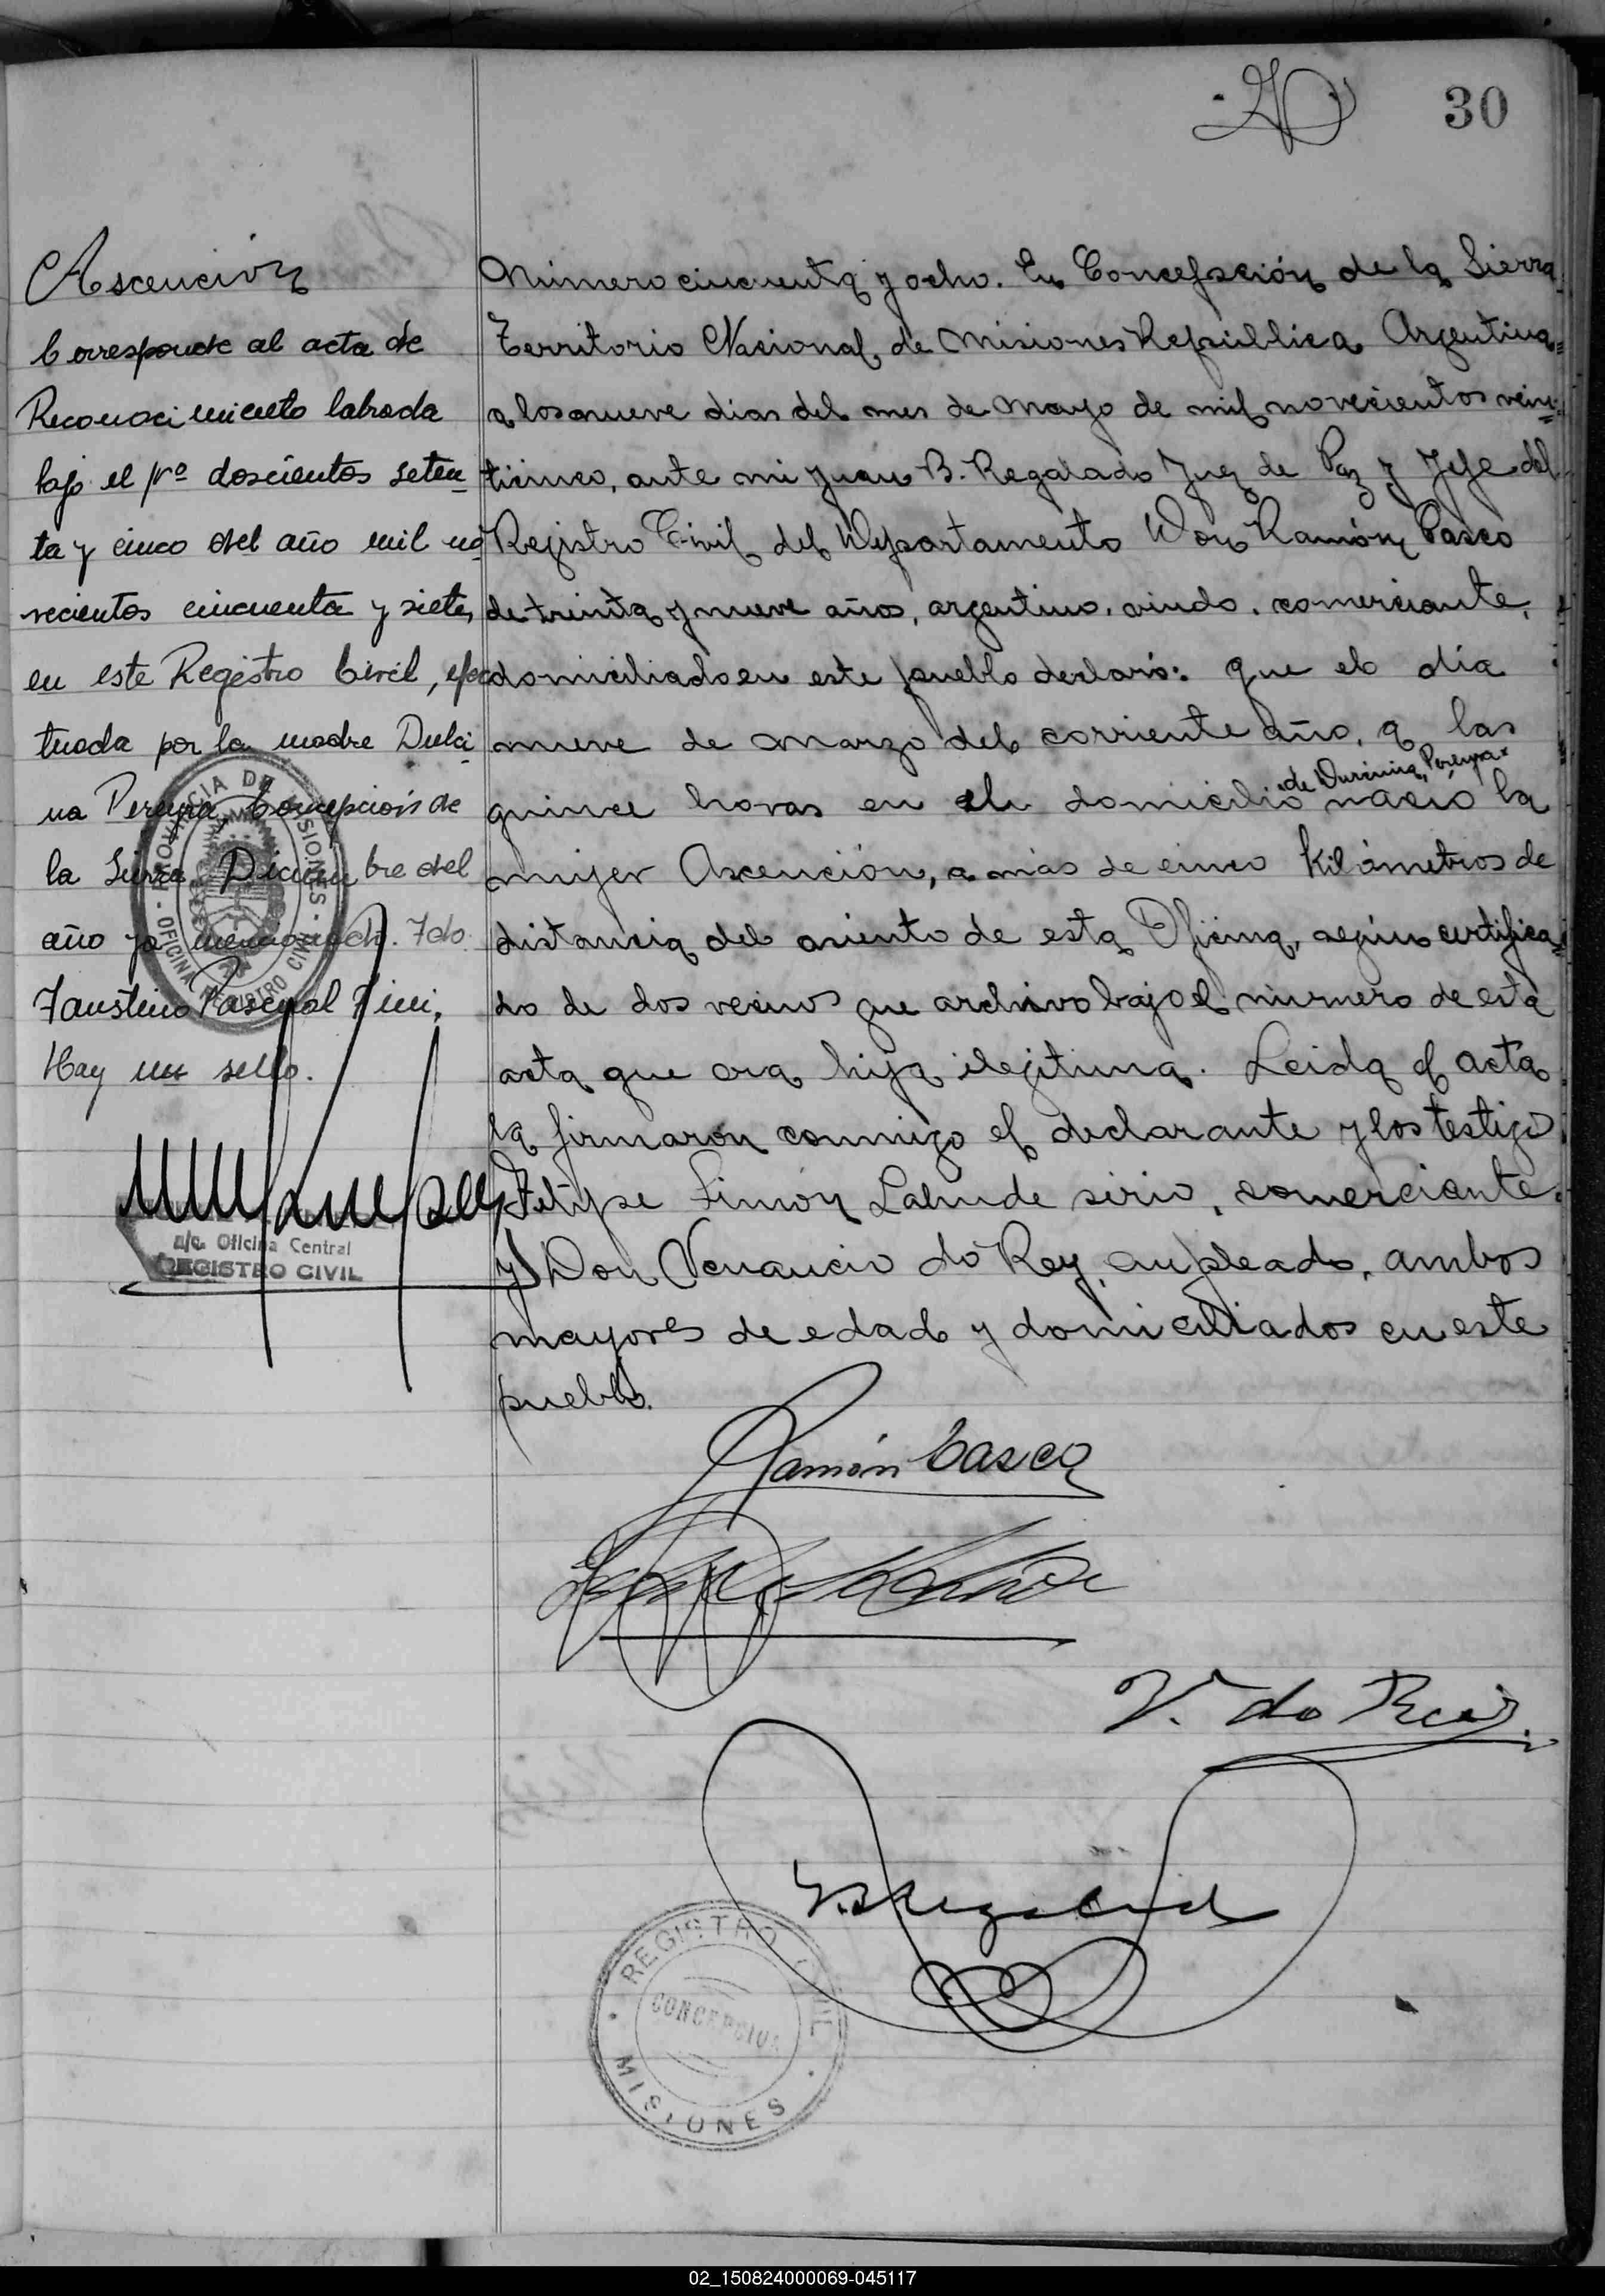 30
Ascención
Corresponde al acta de
Reconocimiento labrada
bajo el Nº doscientos seten-
ta y cinco del año mil no-
vecientos cincuenta y siete,
en este Registro Civil, efec
tuada por la madre Dulci-
na Pereyra, Concepción de
la Sierra, Diciembre del
año ya mencionado. Fdo.
Faustino Pascual Fini.
Hay un sello.
PROVINCIA DE MISIONES
OFICINA REGISTRO CIVIL
a/c. Oficina Central
REGISTRO CIVIL
Número cincuenta y ocho. En Concepción de la Sierra,
Territorio Nacional de Misiones República Argentina=
a los nueve dias del mes de mayo de mil novecientos vein=
ticinco, ante mi Juan B. Regalado Juez de Paz y Jefe del
Registro Civil del Departamento Don Ramón Casco
de treinta y nueve años, argentino, viudo, comerciante,
domiciliado en este pueblo declaró: que el día
nueve de marzo del corriente año, a las
de Durcina Pereyra
quince horas en el domicilio nació la
mujer Ascención, a más de cinco Kilómetros de
distancia del asiento de esta Oficina, según certifica=
do de dos vecinos que archivo bajo el número de esta
acta que era hija ilegitima. Leida el acta
la firmaron conmigo el declarante y los testigos
Felipe Simón Lahude sirio, comerciante
y Don Venancio do Rey, empleado, ambos
mayores de edad y domiciliados en este
pueblo.
Ramón Casco
V. do Rey
J.B. Regalado
REGISTRO CIVIL
CONCEPCION
MISIONES
02_150824000069-045117